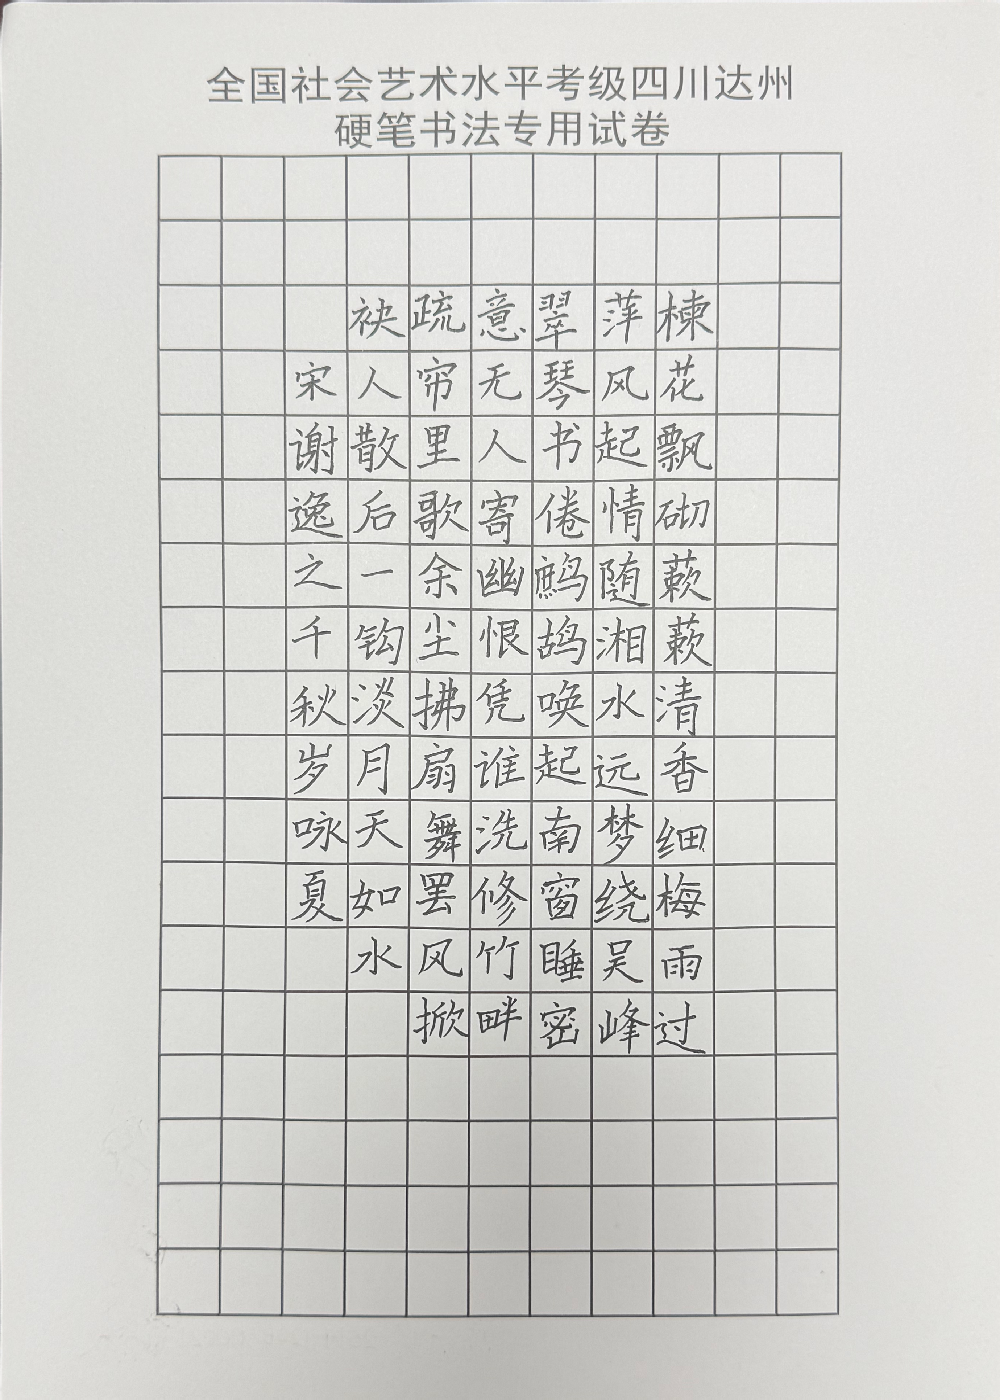 全国社会艺术水平考级四川达州
硬笔书法专用试卷
楝花飘砌蔌蔌清香细梅雨过
萍风起情随湘水远梦绕吴峰
翠琴书倦鹧鸪唤起南窗睡密
意无人寄幽恨凭谁洗修竹畔
疏帘里歌余尘拂扇舞罢风掀
袂人散后一钩淡月天如水
宋谢逸之千秋岁咏夏